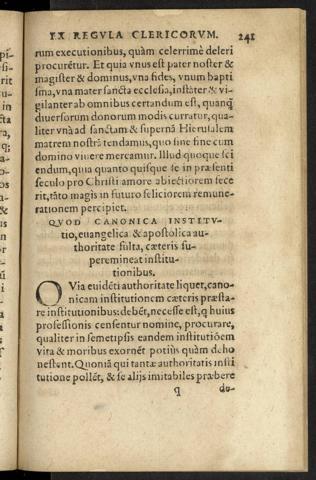 EX REGVLA CLERICORVM. 241
rum executionibus, quàm celerrimè deleri
procurẽtur. Et quia vnus est pater noster &
magister & dominus, vna fides, vnum bapti
sma, vna mater sancta ecclesia, instãter & vi-
gilanter ab omnibus certandum est, quanq̃
diuersorum donorum modis curratur, qua-
liter vnà ad sanctam & supernã Hierusalem
matrem nostrã tendamus, quo sine fine cum
domino viuere mereamur. Illud quoque sci
endum, quia quanto quisque se in præsenti
seculo pro Christi amore abiectiorem fece
rit, tãto magis in futuro feliciorem remune-
rationem percipiet.
QVOD CANONICA INSTITV-
tio, euangelica & apostolica au-
thoritate fulta, cæteris su-
peremineat institu-
tionibus.
QVia euidẽti authoritate liquet, cano-
nicam institutionem cæteris præsta-
re institutionibus: debẽt, necesse est, q huius
professionis censentur nomine, procurare,
qualiter in semetipsis eandem institutiõem
vita & moribus exornẽt potiùs quàm deho
nestent. Quoniã qui tantæ authoritatis insti
tutione pollẽt, & se alijs imitabiles præbere
q de-